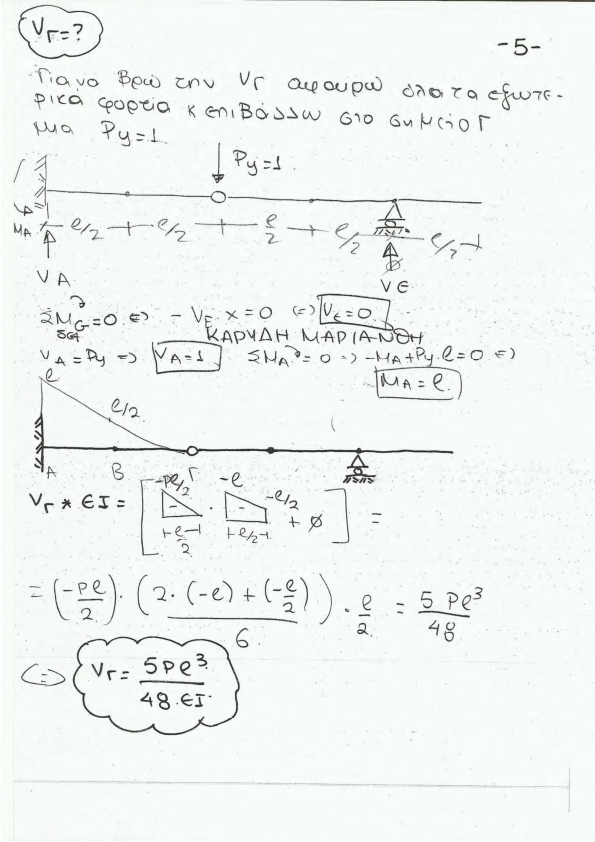 VΓ=?
-5-
Για να βρω την VΓ αφαιρώ όλα τα εξωτε-
ρικά φορτία κ επιβάλλω στο σημείο Γ
μια Py=1
Py=1
MA ℓ/2 ℓ/2 ℓ/2 ℓ/2 ℓ/2
VA VE
ΣMG=0 ⇔ - VE x=0 ⇔ VE=0
ΚΑΡΥΔΗ ΜΑΡΙΑΝΘΗ
VA=Py ⇒ VA=1 ΣMA=0 ⇒ -MA+Py.ℓ=0 ⇔
MA=ℓ
ℓ
ℓ/2
A B Γ
-Pℓ/2 -ℓ -ℓ/2
VΓ * EI = [ - · - + ∅ ] =
ℓ/2 ℓ/2
= (-Pℓ/2)·(2·(-ℓ)+(-ℓ/2)/6)·ℓ/2 = 5Pℓ³/48
⇔ VΓ= 5Pℓ³/48·EI